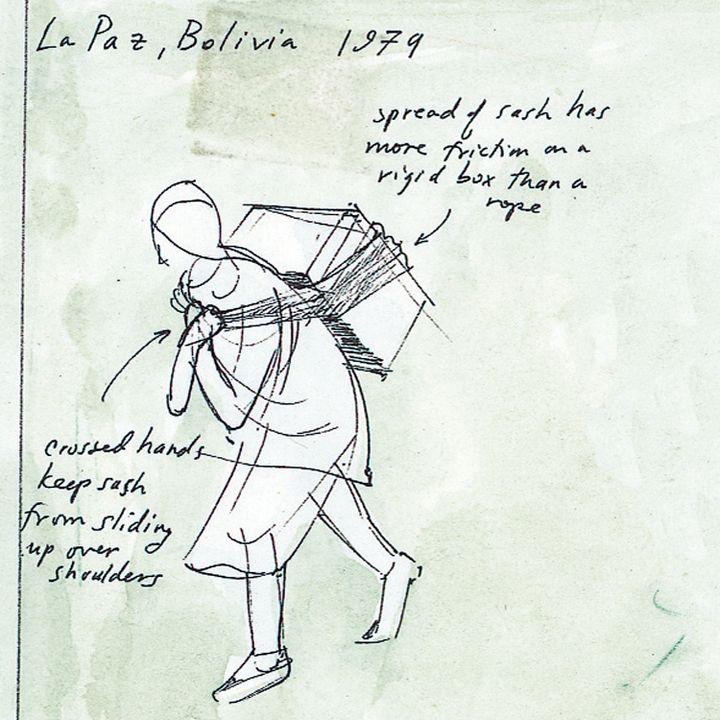 La Paz, Bolivia 1979
spread of sash has
more friction on a
rigid box than a
rope
crossed hands
keep sash
from sliding
up over
shoulders